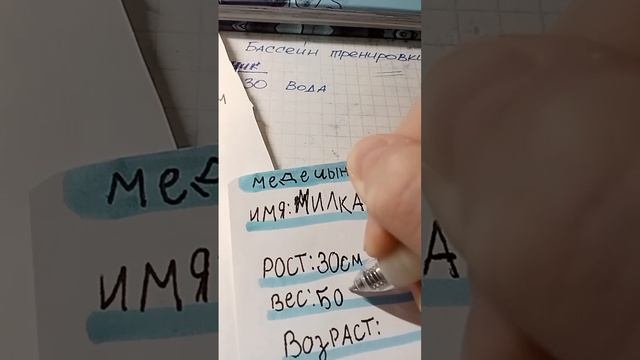 Бассейн тренировки
30 Вода
медецын
имя: Милка
Рост: 30см
Вес: 50
Возраст: